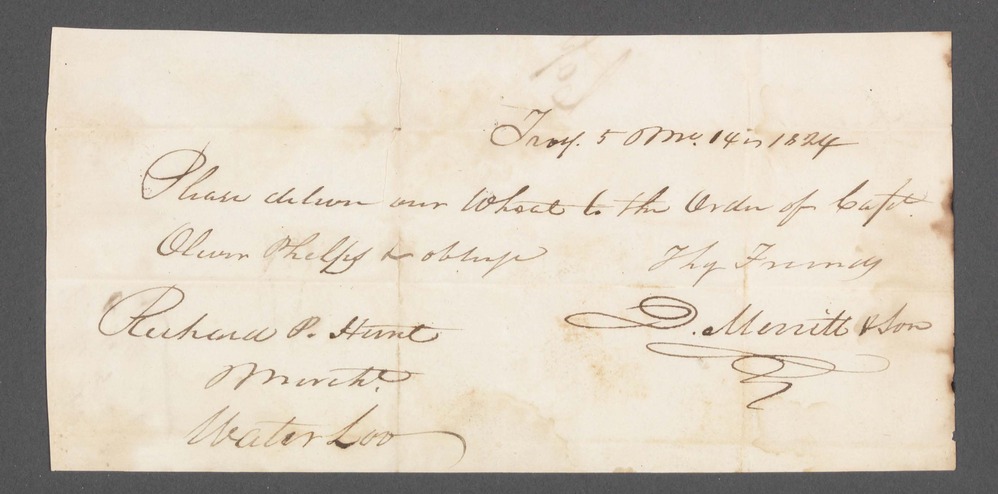 Troy. 5 Mo. 14th 1824
Please deliver our Wheat to the Order of Capt.
Oliver Phelps & oblige Thy Friends
D. Merritt & Son
Richard P. Hunt
Mercht.
Waterloo